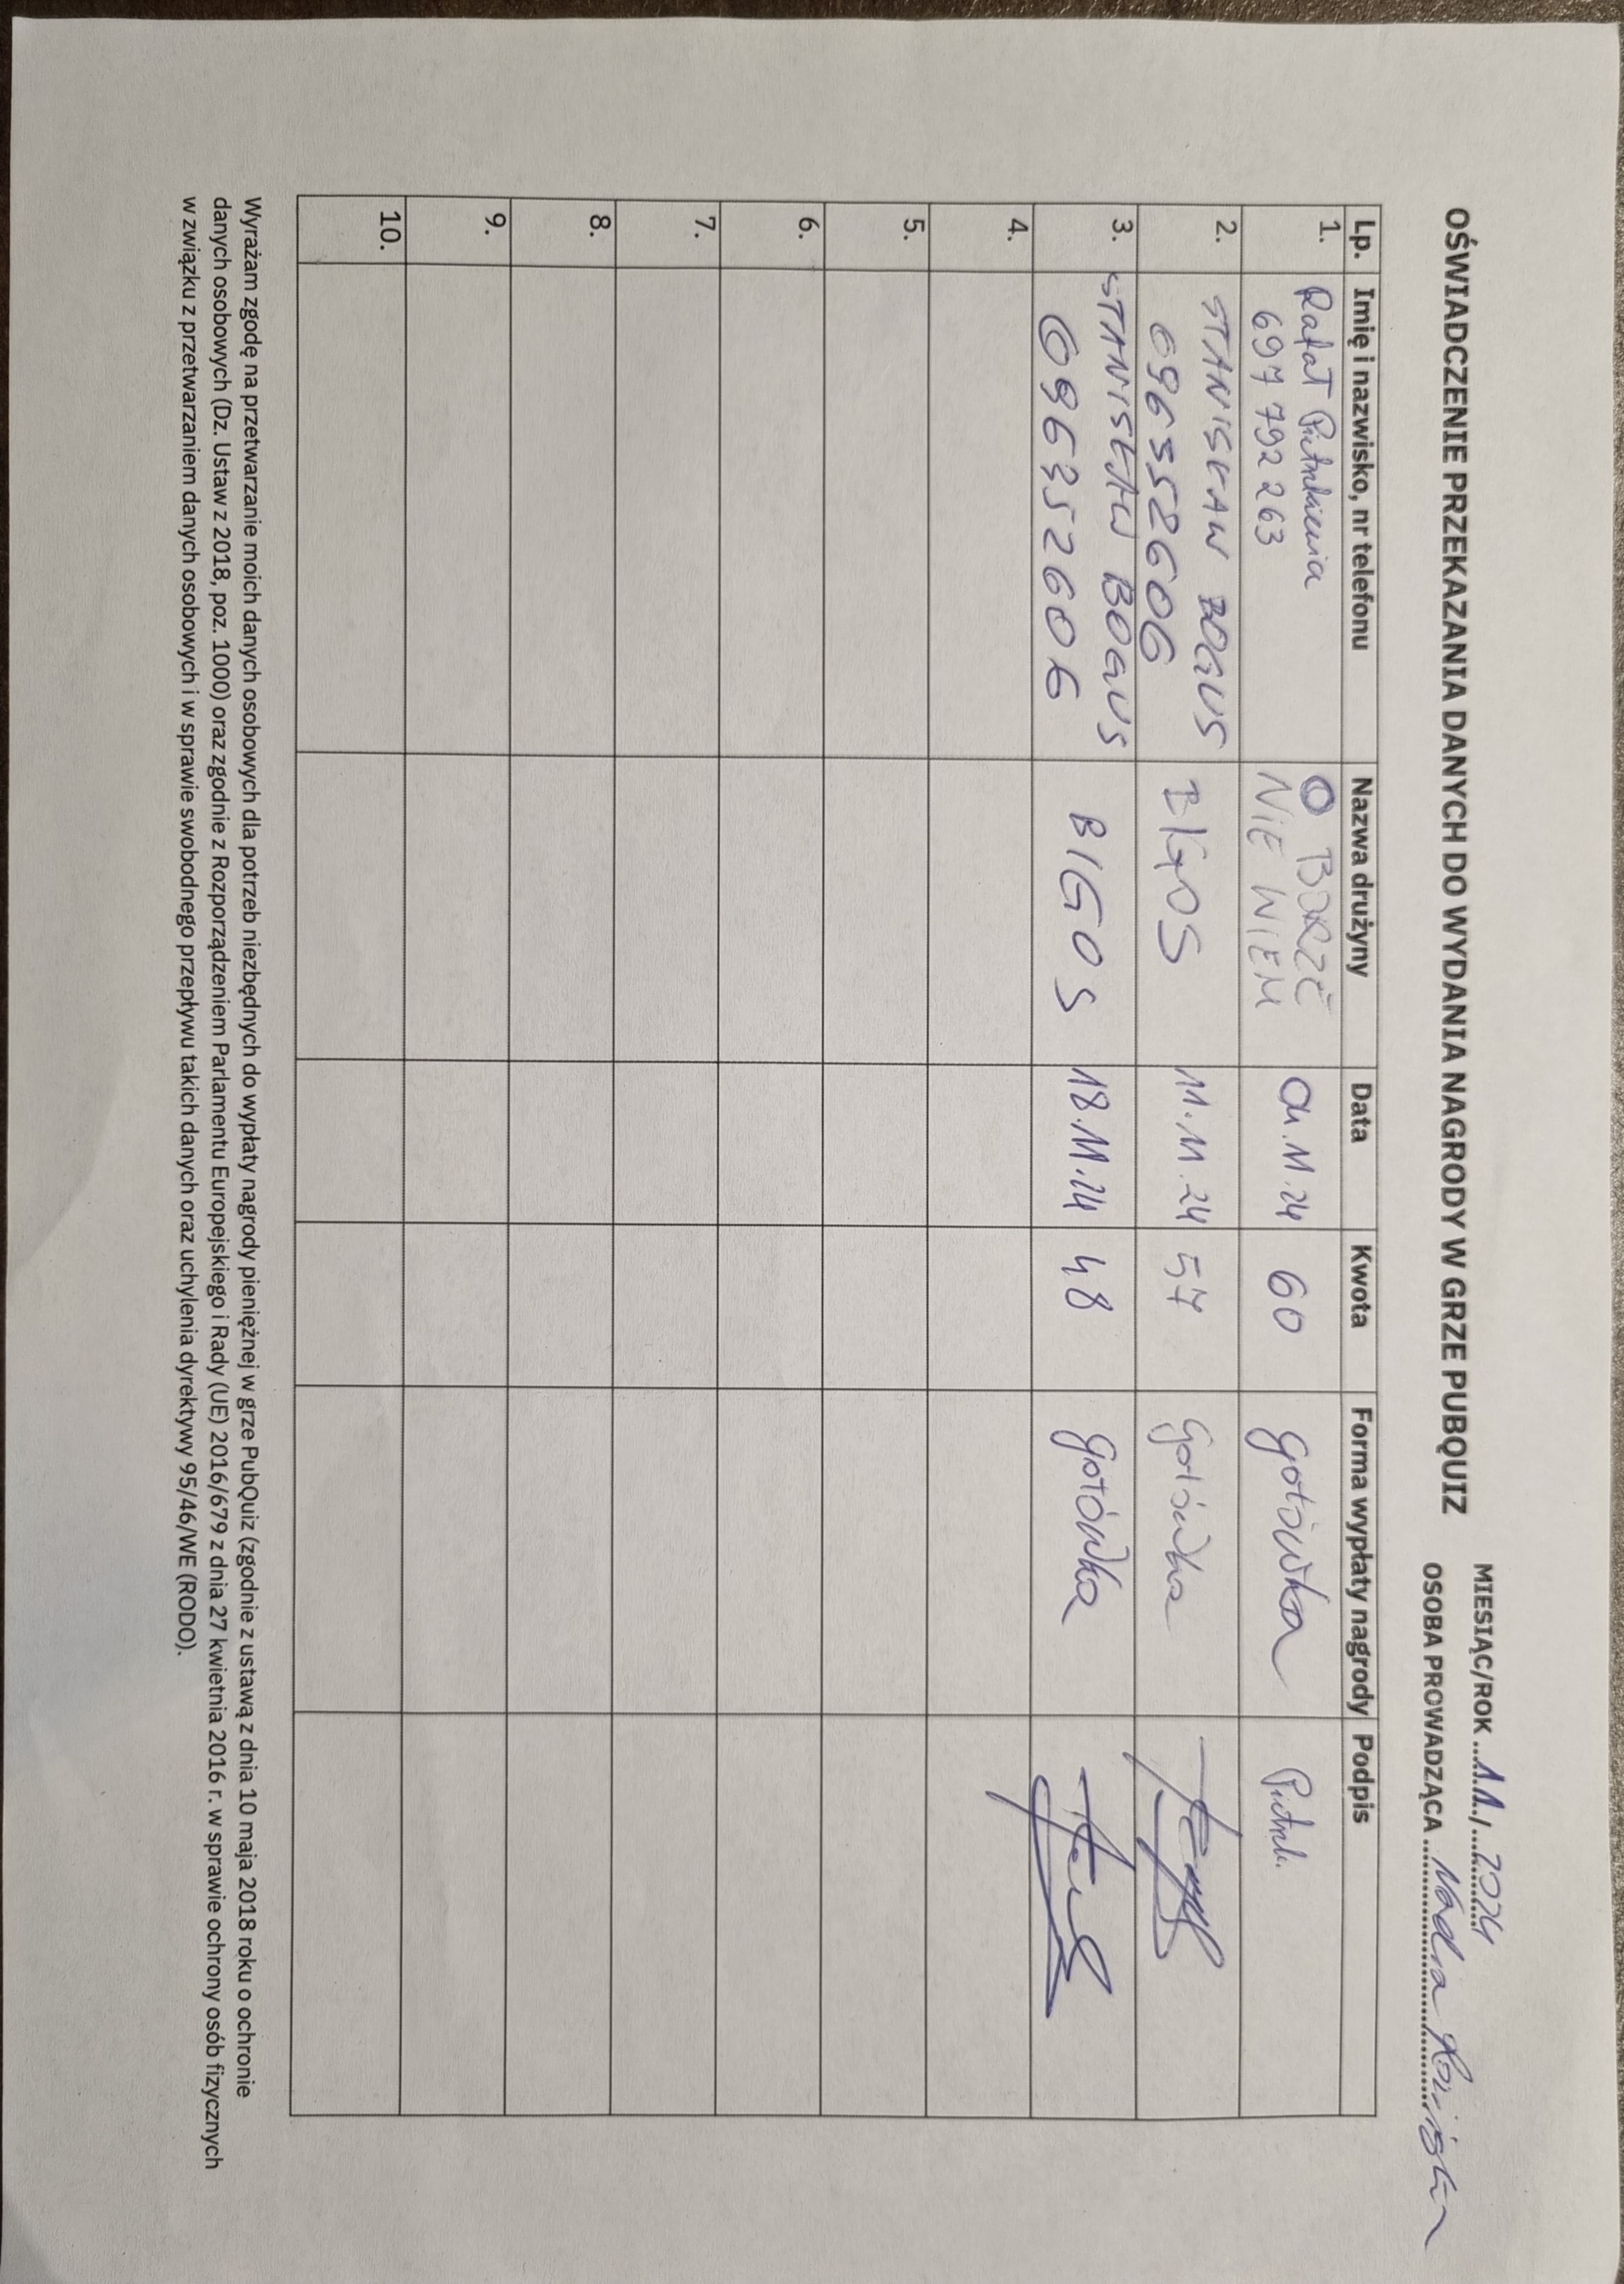 MIESIĄC/ROK ...11./...2024
OŚWIADCZENIE PRZEKAZANIA DANYCH DO WYDANIA NAGRODY W GRZE PUBQUIZ
OSOBA PROWADZĄCA ...Nadia
Lp. Imię i nazwisko, nr telefonu Nazwa drużyny Data Kwota Forma wypłaty nagrody Podpis
1. Rafał O BORZE 04.11.24 60 gotówka
697 792 263 NIE WIEM
2. STANISŁAW BOGUS BIGOS 11.11.24 57 gotówka
696352606
3. STANISŁAW BOGUS BIGOS 18.11.24 48 gotówka
696352606
4.
5.
6.
7.
8.
9.
10.
Wyrażam zgodę na przetwarzanie moich danych osobowych dla potrzeb niezbędnych do wypłaty nagrody pieniężnej w grze PubQuiz (zgodnie z ustawą z dnia 10 maja 2018 roku o ochronie
danych osobowych (Dz. Ustaw z 2018, poz. 1000) oraz zgodnie z Rozporządzeniem Parlamentu Europejskiego i Rady (UE) 2016/679 z dnia 27 kwietnia 2016 r. w sprawie ochrony osób fizycznych
w związku z przetwarzaniem danych osobowych i w sprawie swobodnego przepływu takich danych oraz uchylenia dyrektywy 95/46/WE (RODO).